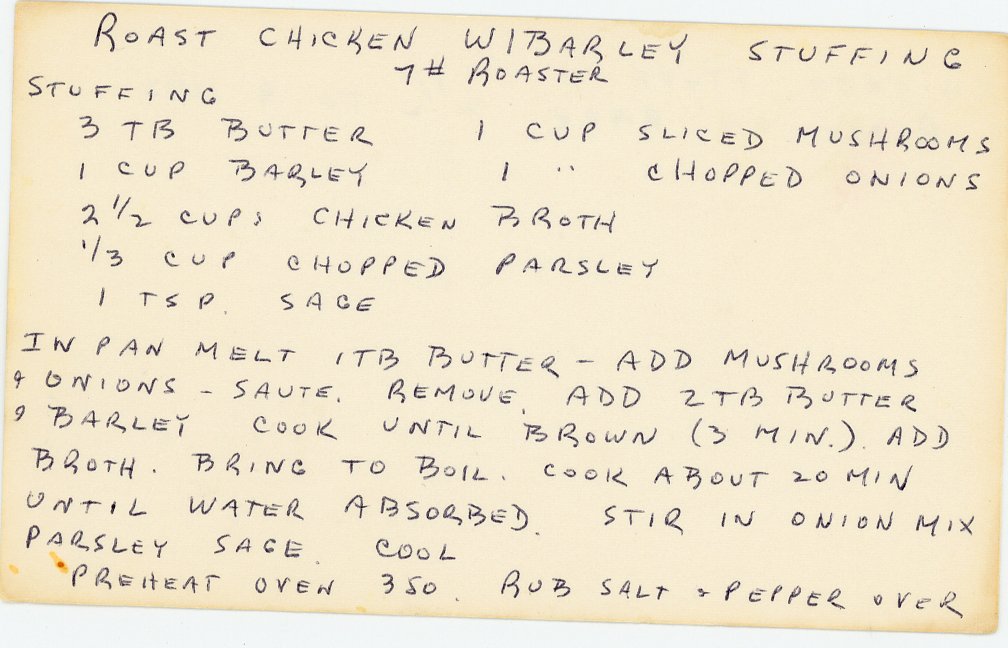 ROAST CHICKEN W/BARLEY STUFFING
7# ROASTER
STUFFING
3 TB BUTTER 1 CUP SLICED MUSHROOMS
1 CUP BARLEY 1 " CHOPPED ONIONS
2 1/2 CUPS CHICKEN BROTH
1/3 CUP CHOPPED PARSLEY
1 TSP. SAGE
IN PAN MELT 1TB BUTTER - ADD MUSHROOMS
& ONIONS - SAUTE. REMOVE. ADD 2TB BUTTER
& BARLEY COOK UNTIL BROWN (3 MIN.). ADD
BROTH. BRING TO BOIL. COOK ABOUT 20 MIN
UNTIL WATER ABSORBED. STIR IN ONION MIX
PARSLEY SAGE. COOL
PREHEAT OVEN 350. RUB SALT & PEPPER OVER